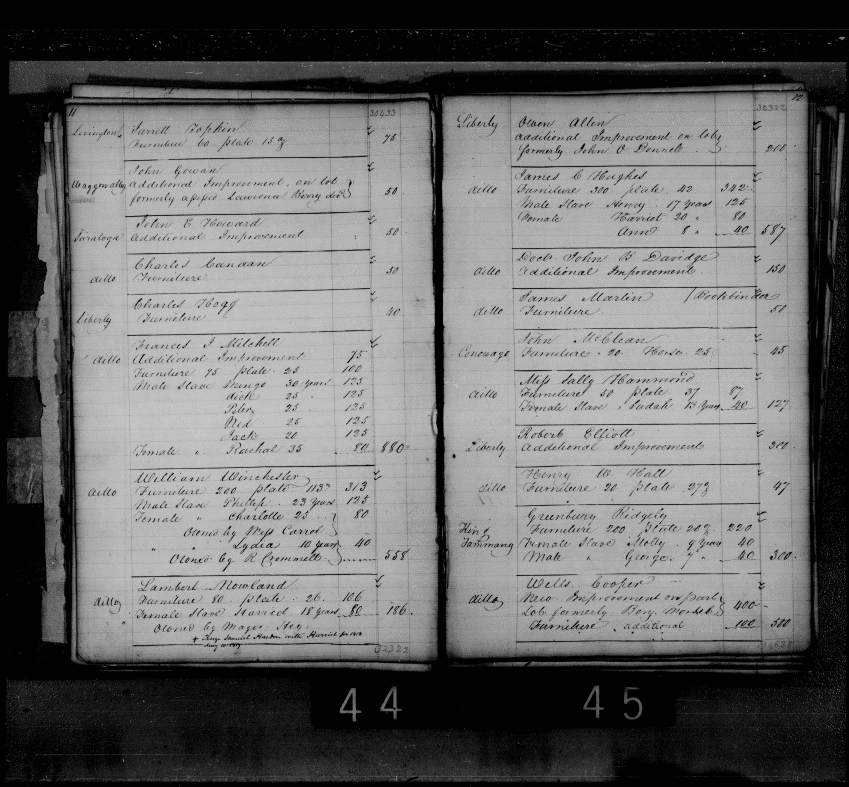 11
Jarrett Bopkin
Furniture 60 plate 75
John Gowan
Additional Improvement on lot
formerly Lawrence Berry 50
John E Howard
Saratoga Additional Improvement 50
Charles
ditto Furniture 30
Charles Hogg
Liberty Furniture 40
Frances J Mitchell
ditto Additional Improvement 75
Furniture 75 plate 25 100
Male Slave Mingo 30 Years 125
dick 25 " 125
Peter 25 " 125
Ned 25 125
Jack 20 125
Female " Rachal 35 80 880
William Winchester
ditto Furniture 200 plate 113 313
Male Slave Philip 23 Years 125
Female " Charlotte 25 80
Owned by Miss Carrol
" " Lydia 10 Years 40
Owned by R 558
Lambert Nowland
ditto Furniture 80 plate 26 106
Female Slave Harriod 18 Years 80 186
Owned by
+ Charge Samuel with Harriod for 1818
12
Liberty Owen Allen
Additional Improvement on lot
formerly John O Donnell 200
James C Hughes
ditto Furniture 300 plate 42 342
Male Slave Henry 17 Years 125
Female Harriot 20 " 80
Ann 8 " 40 587
Doctr John B Davidge
ditto Additional Improvement 150
James Martin (Bookbinder
ditto Furniture 50
John McClean
Conowago Furniture 20 Horse 25 45
Miss Sally Hammond
ditto Furniture 50 plate 37 87
Female Slave Judah 13 Years 40 127
Robert Elliott
Liberty Additional Improvements 300
Henry W Hall
ditto Furniture 20 plate 27 47
Greenbury Ridgely
King Furniture 200 plate 20 220
Tammany Female Slave Molly 9 Years 40
Male " George 7 " 40 300
Wells Cooper
ditto New Improvement on part
Lot formerly 400
Furniture additional 100 500
44
45